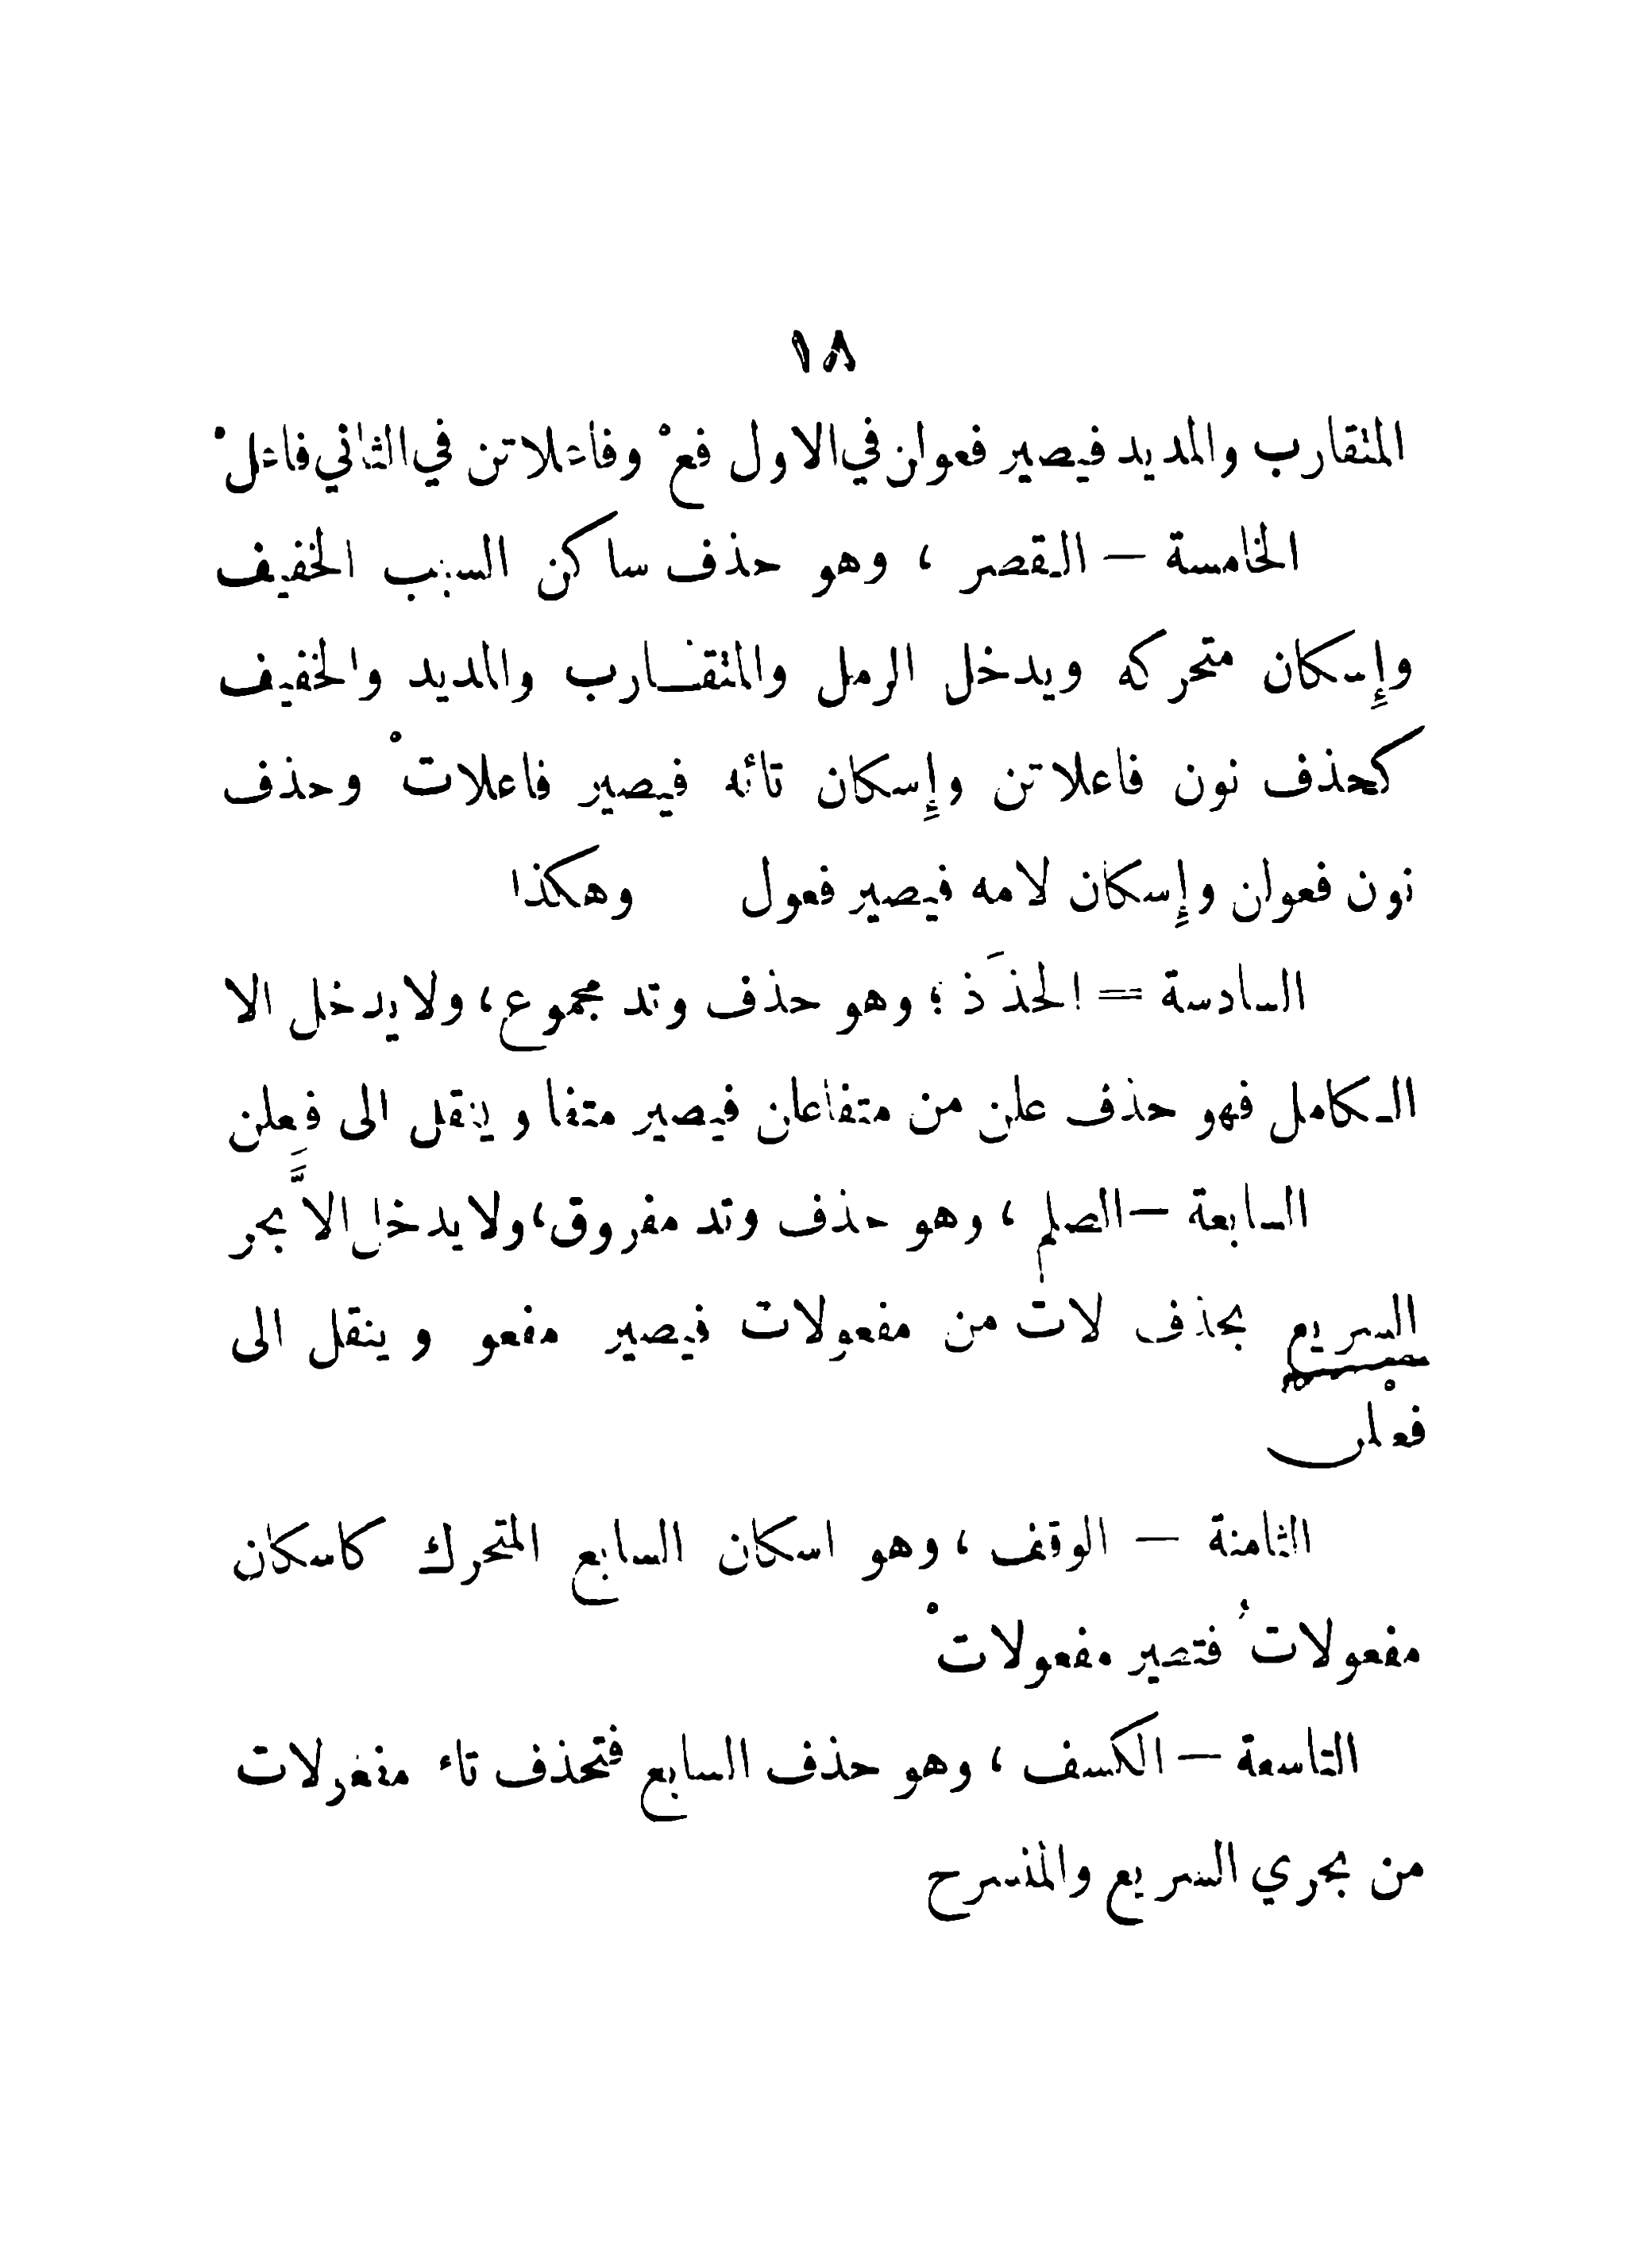 ١٨
المتقارب والمديد فيصير فعولن في الاول فعْ وفاعلاتن في الثاني فاعلْ
الخامسة – القصر ، وهو حذف ساكن السبب الخفيف
وإسكان متحركه ويدخل الرمل والمتقارب والمديد والخفيف
كحذف نون فاعلاتن وإسكان تائه فيصير فاعلاتْ وحذف
نون فعولن وإسكان لامه فيصير فعول وهكذا
السادسة = الحذَذ ؛ وهو حذف وتد مجموع، ولا يدخل الا
الكامل فهو حذف علن من متفاعلن فيصير متفا وينقل الى فعِلن
السابعة – الصلم ، وهو حذف وتد مفروق، ولا يدخل الاَّ بحر
السريع بحذف لات من مفعولات فيصير مفعو وينقل الى
فعْلن
الثامنة – الوقف ، وهو اسكان السابع المتحرك كاسكان
مفعولاتُ فتصير مفعولاتْ
التاسعة – الكسف ، وهو حذف السابع فتحذف تاء مفعولات
من بحري السريع والمنسرح